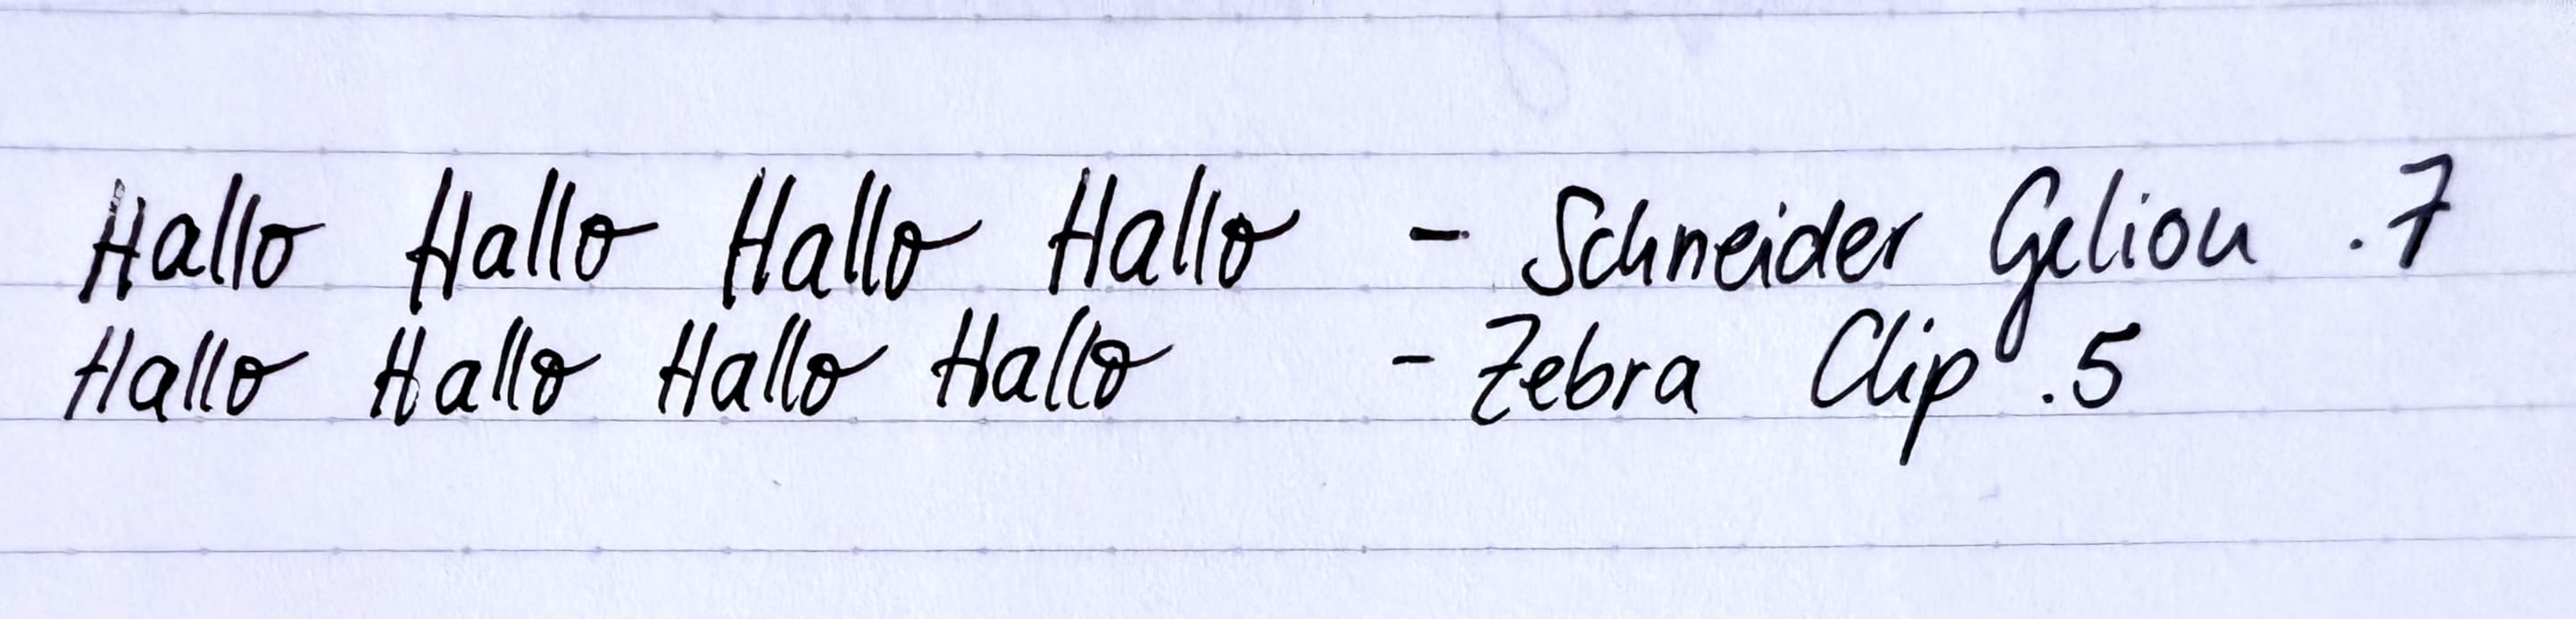 Hallo Hallo Hallo Hallo - Schneider Gelion .7
Hallo Hallo Hallo Hallo - Zebra Clip .5